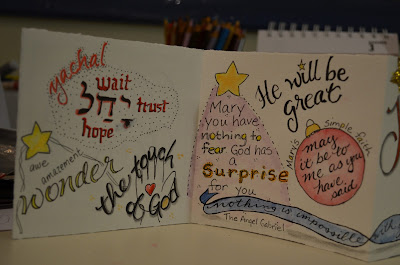 yachal
wait
יחל
trust
hope
awe
amazement
wonder
the touch
of God
Mary
you have
nothing to
fear God has
a
Surprise
for you
The Angel Gabriel
He will be
great
Mary's simple faith
may
it be to
me as you
have
said
nothing is impossible